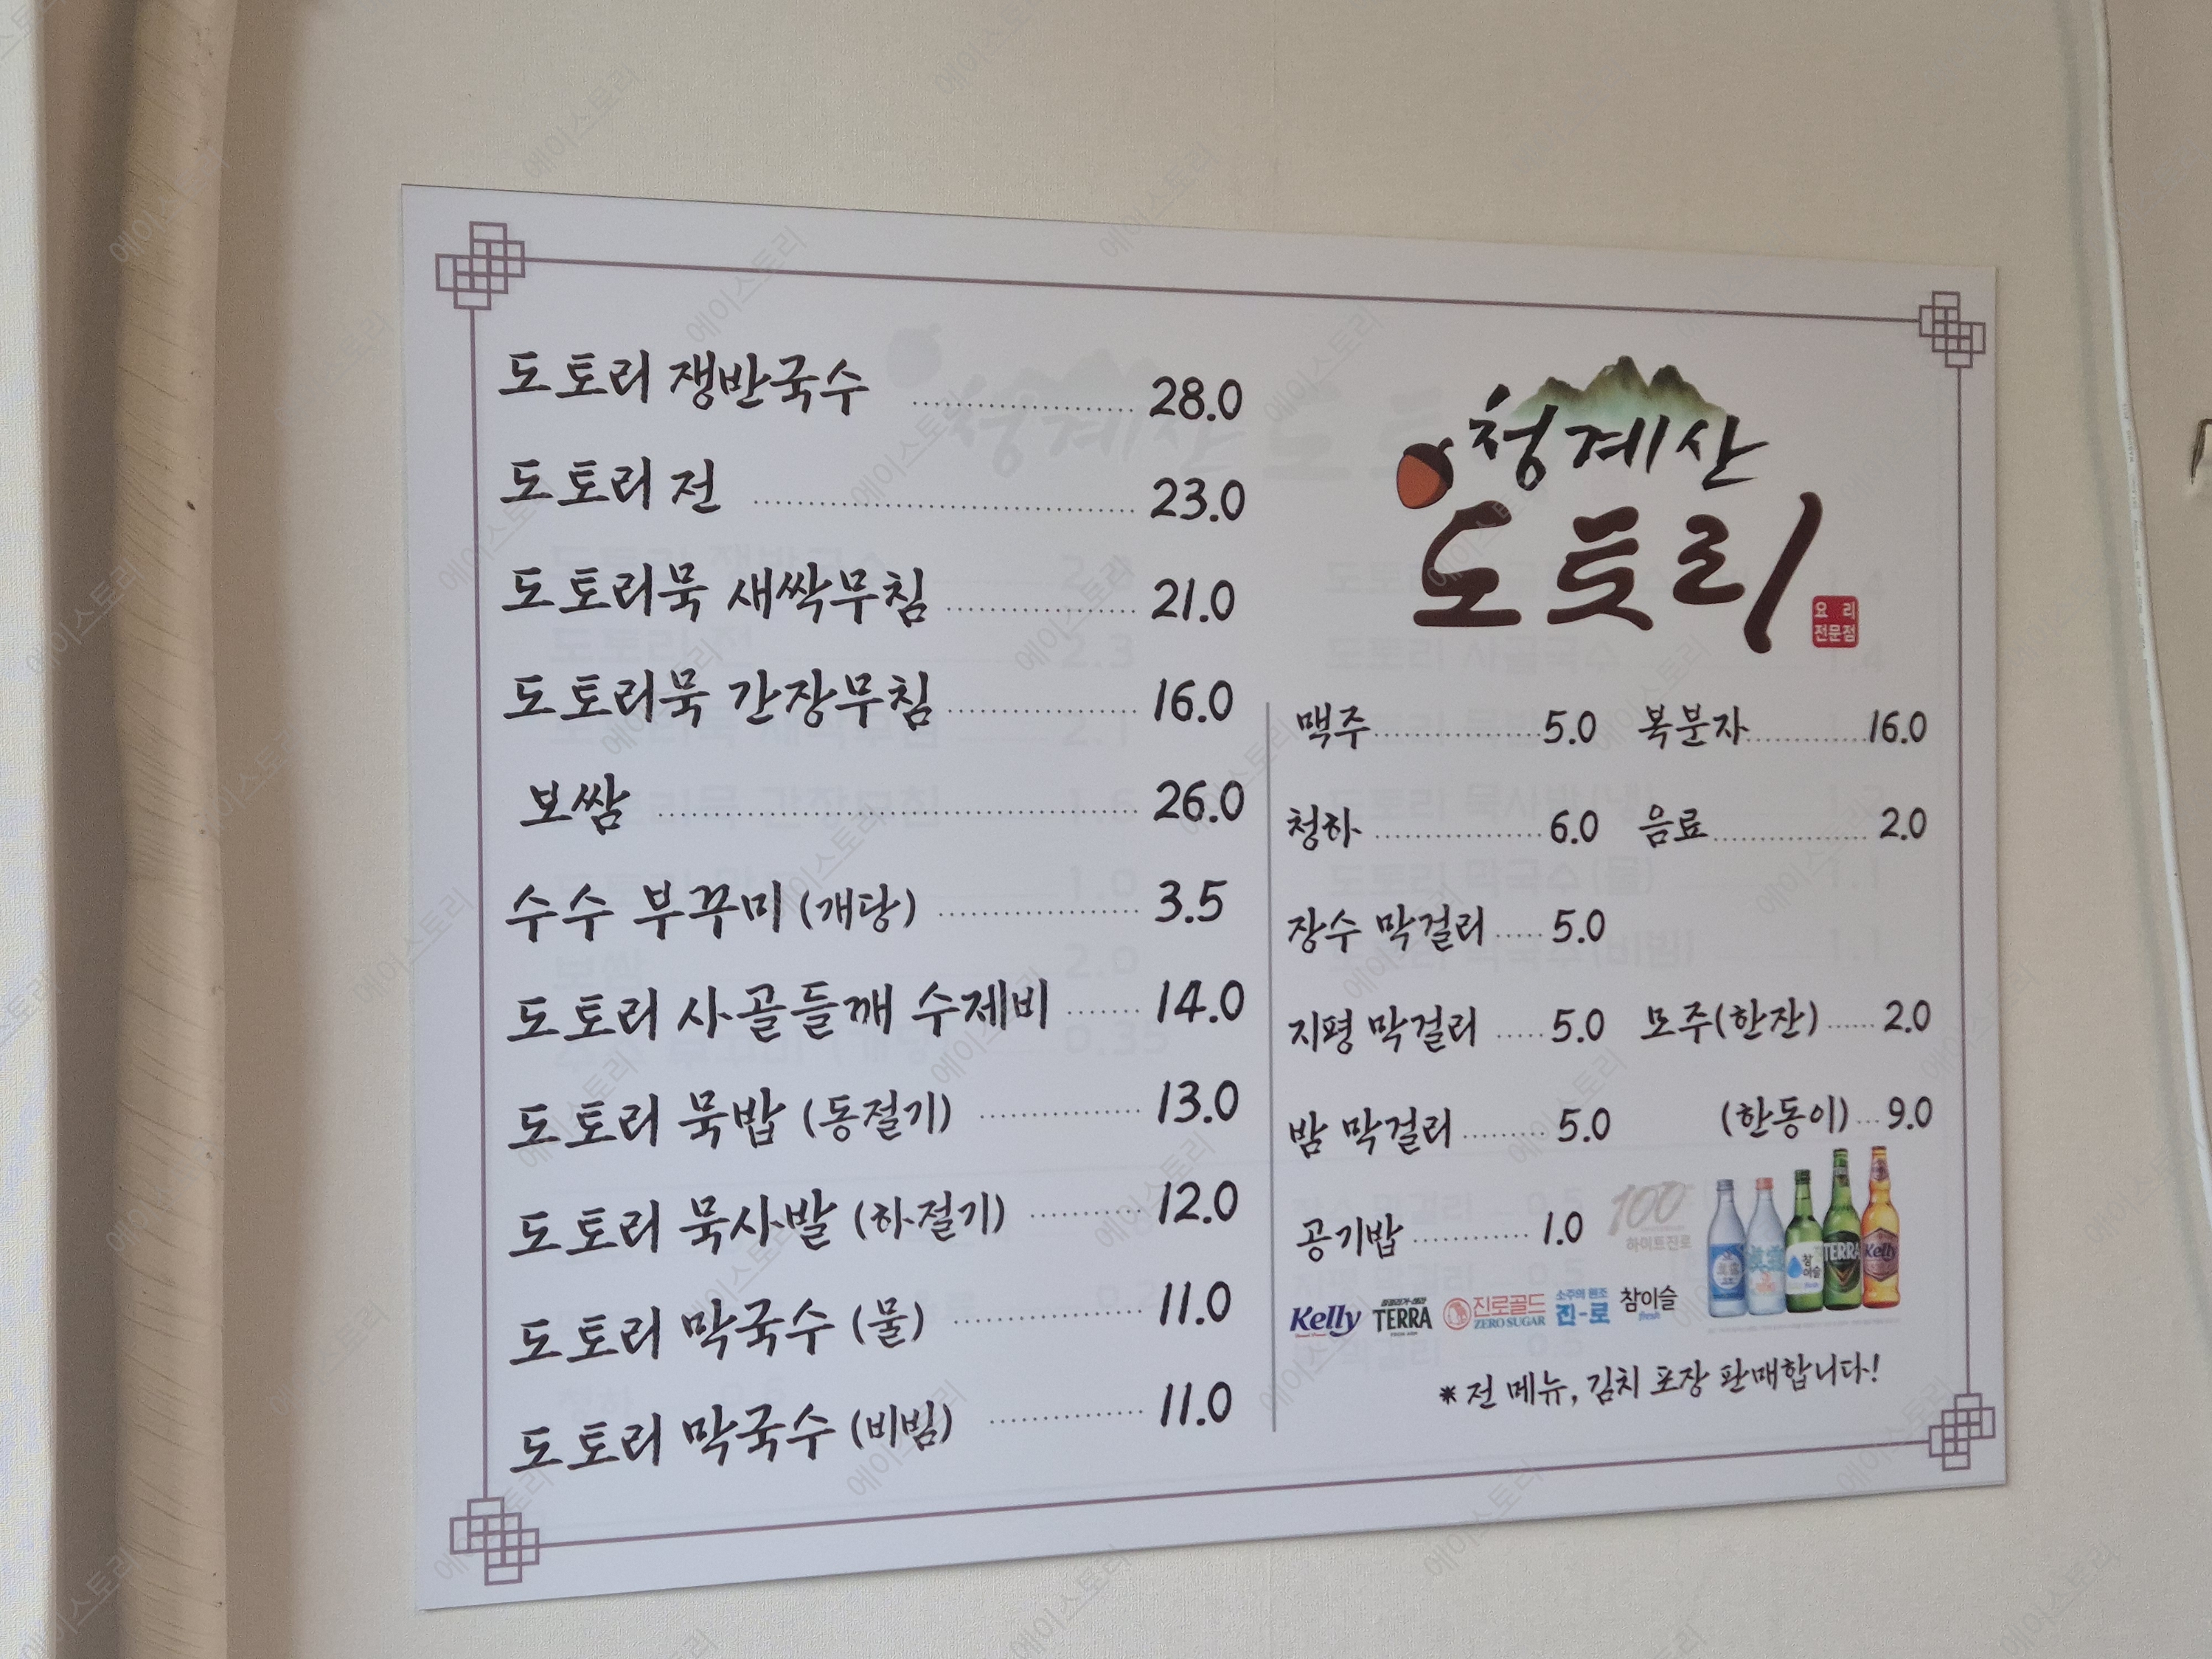 도토리 쟁반국수 28.0
도토리 전 23.0
도토리묵 새싹무침 21.0
도토리묵 간장무침 16.0
보쌈 26.0
수수 부꾸미 (개당) 3.5
도토리 사골들깨 수제비 14.0
도토리 묵밥 (동절기) 13.0
도토리 묵사발 (하절기) 12.0
도토리 막국수 (물) 11.0
도토리 막국수 (비빔) 11.0
청계산
도토리
요리
전문점
맥주 5.0 복분자 16.0
청하 6.0 음료 2.0
장수 막걸리 5.0
지평 막걸리 5.0 모주(한잔) 2.0
밤 막걸리 5.0 (한동이) 9.0
공기밥 1.0
100
하이트진로
참이슬 TERRA Kelly
Kelly TERRA 진로골드 ZERO SUGAR 소주의 원조 진-로 참이슬 fresh
*전 메뉴, 김치 포장 판매합니다!
에이스토리